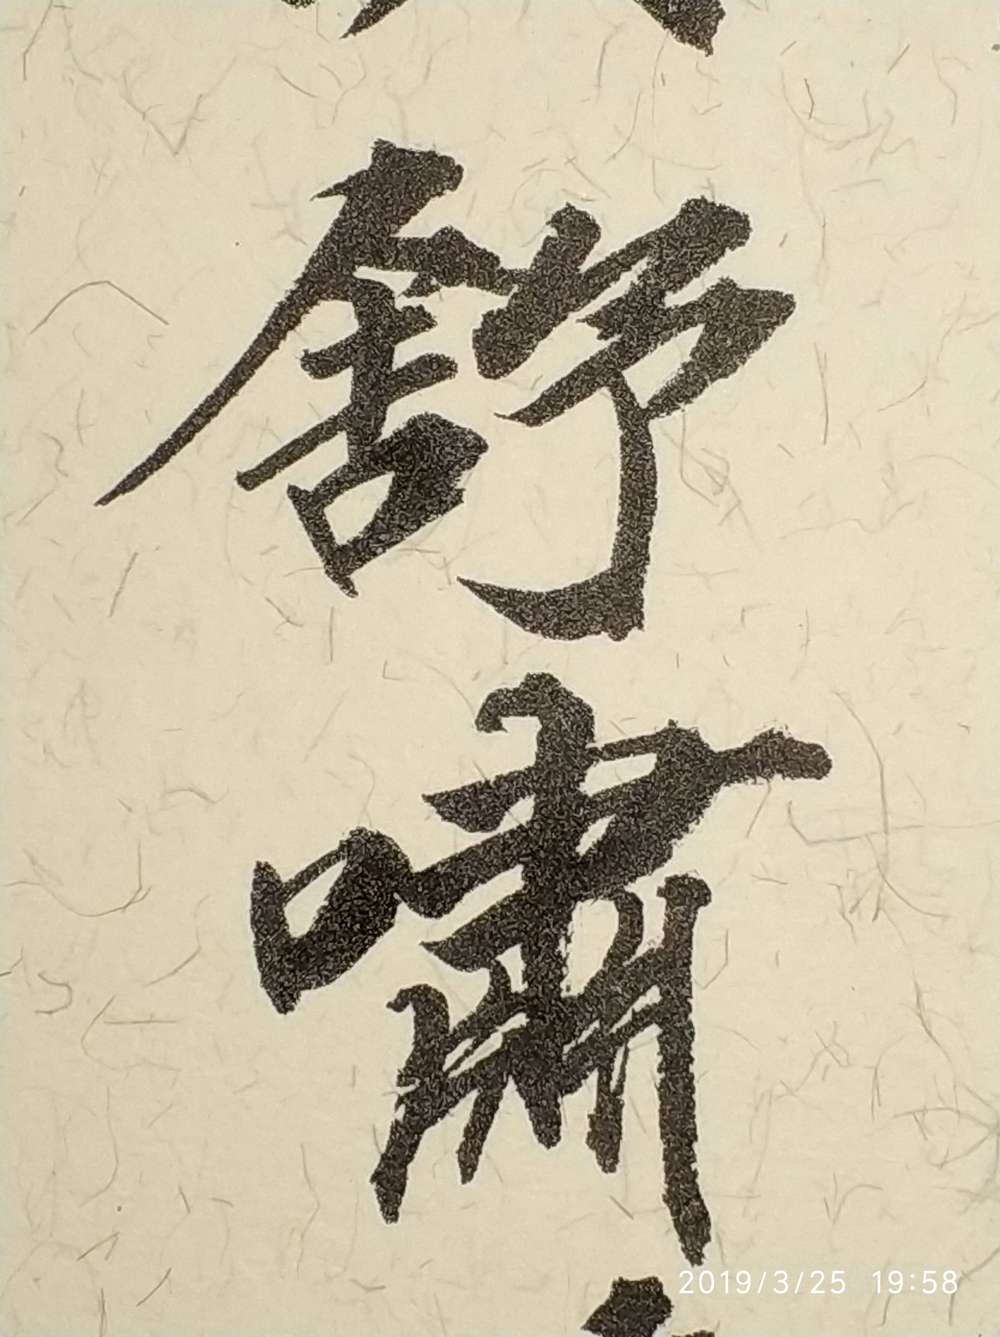 舒
嘯
2019/3/25 19:58